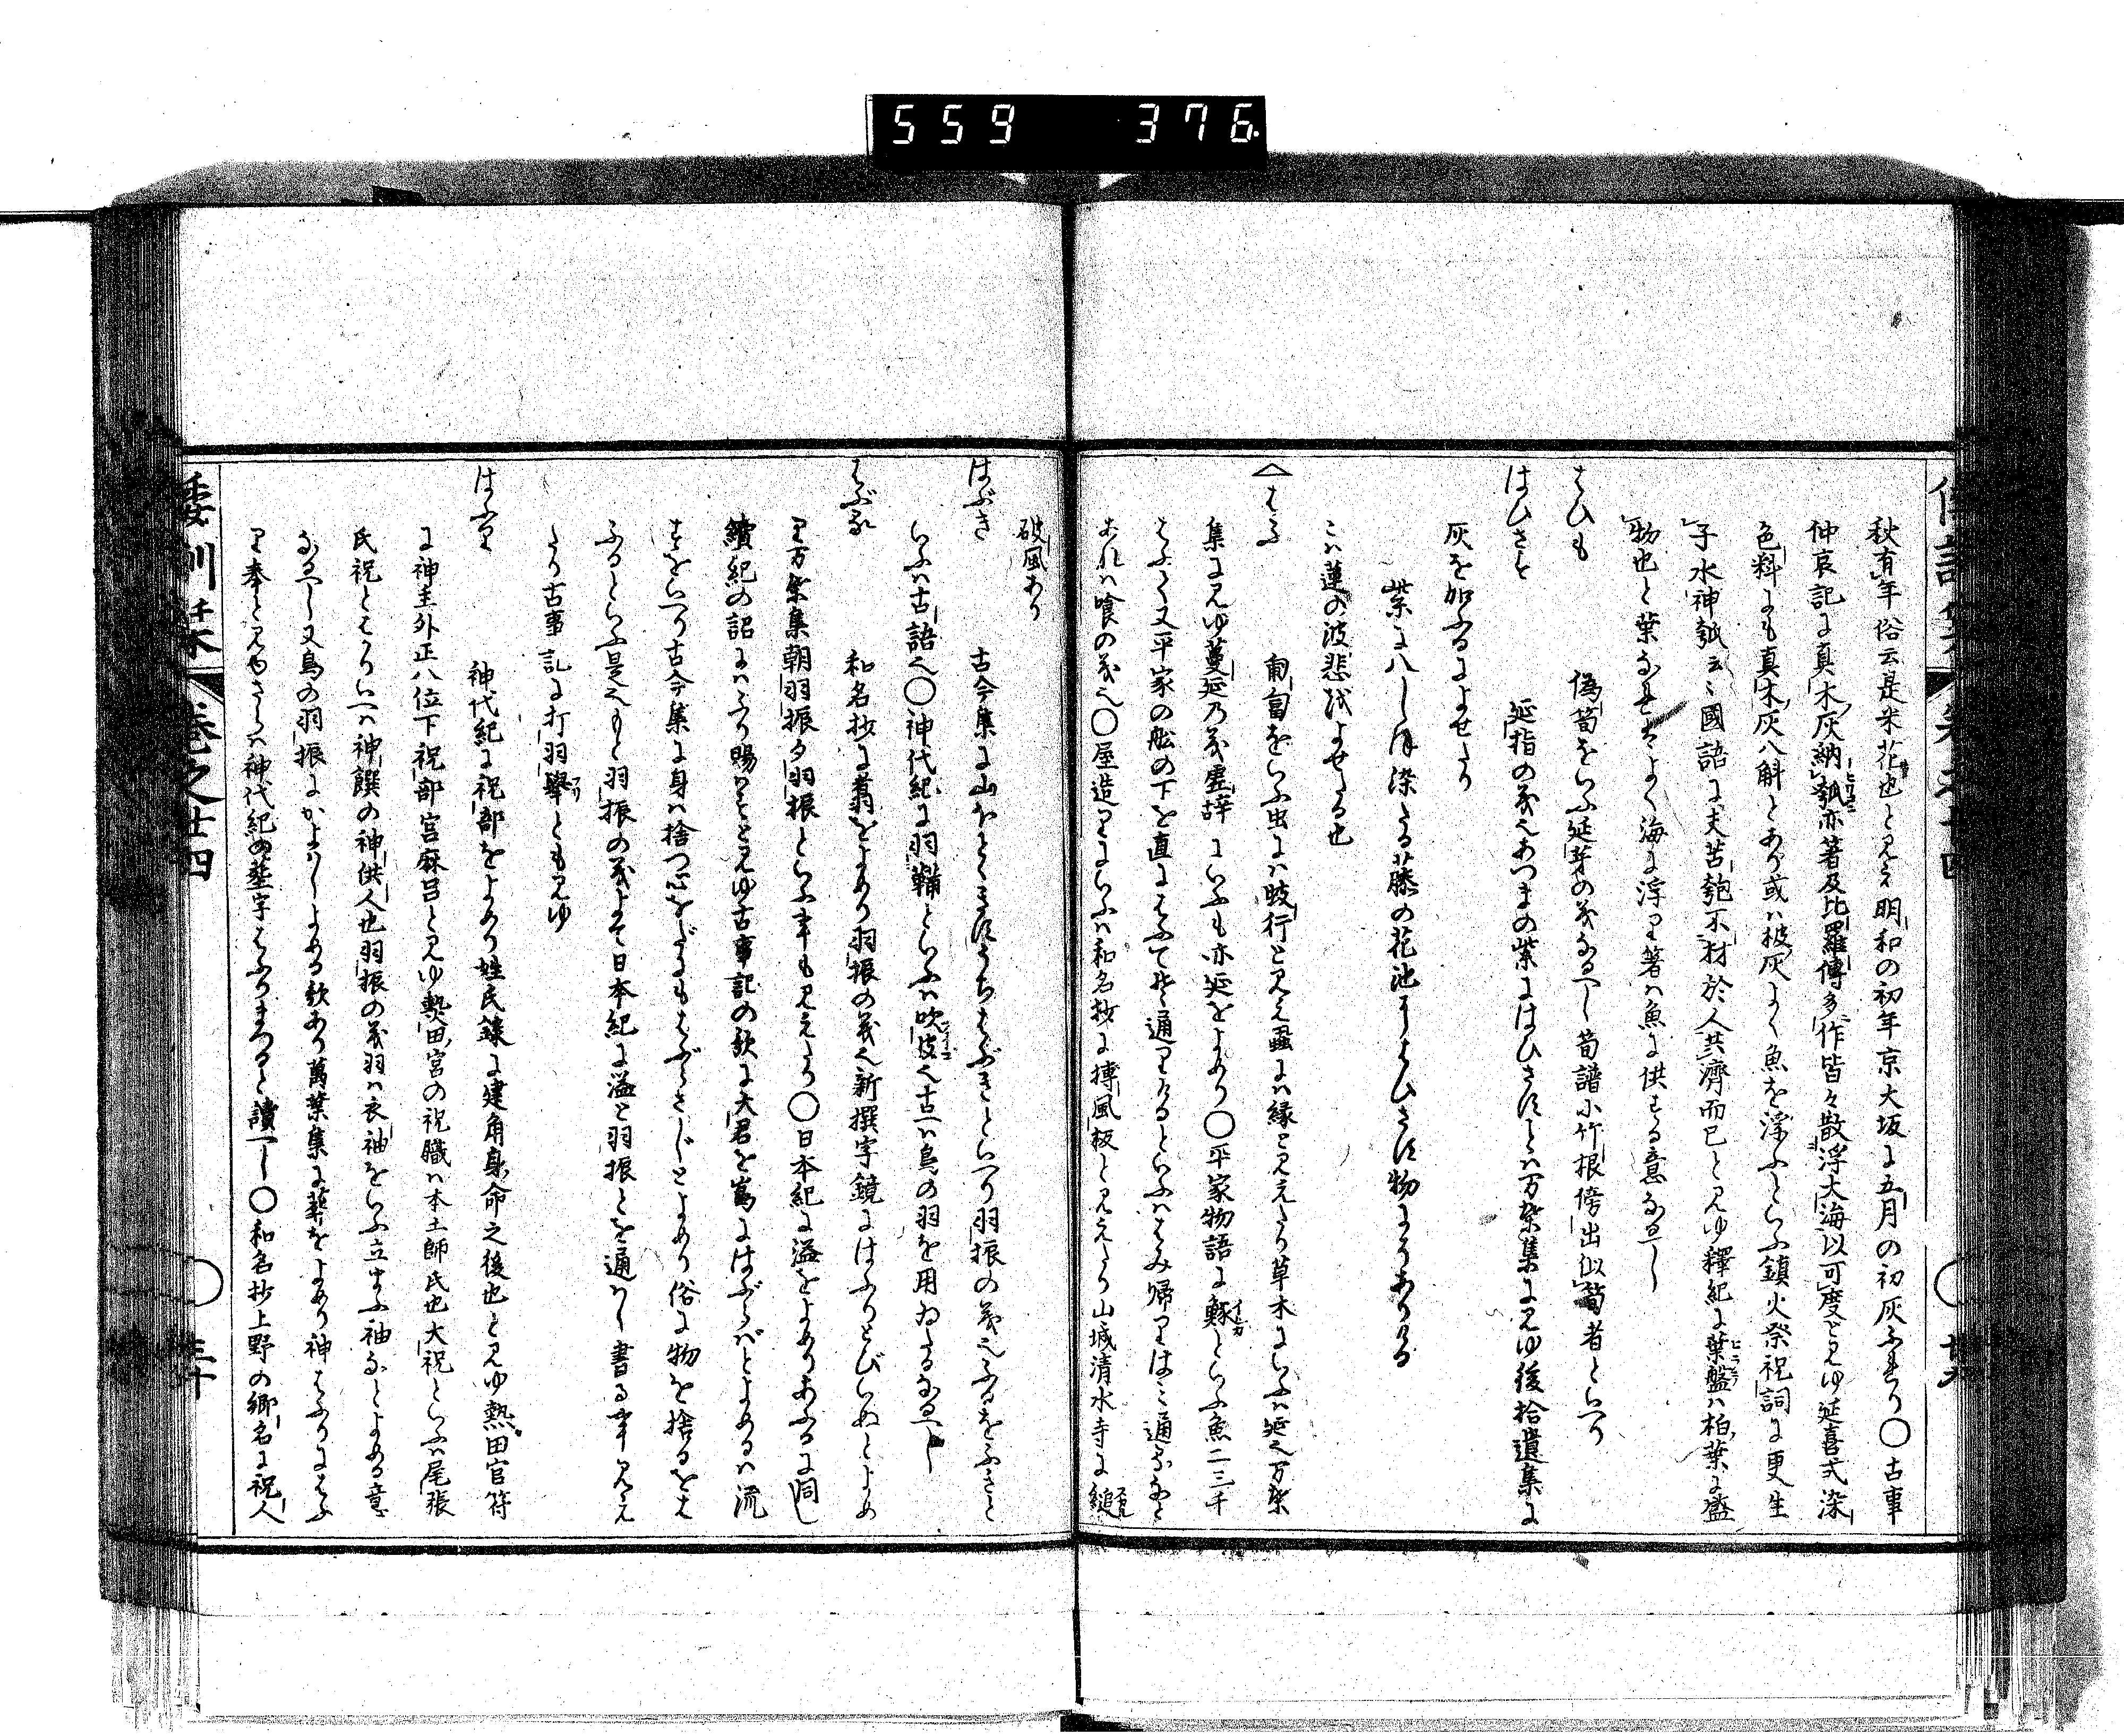 559 376
秋有年俗云是米花也と見え明和の初年京大坂に五月の初灰ふれり〇古事
仲哀記に真木灰納瓠亦箸及比羅傳多作皆々散浮大海以可度と見ゆ延喜式染
色料にも真木灰八斛とあり或は被灰よく魚を浮ふといふ鎮火祭祝詞に更生
子水神瓠云々國語に夫苦匏不材於人共濟而已と見ゆ釋紀に葉盤は柏葉に盛
物也と葉なれはよく海に浮り箸は魚に供する意なるへし
はひも 偽筍をいふ延芽の義なるへし筍譜小竹根傍出似筍者といへり
はひさす 延指の義也あつまの紫にはひさすとは万葉集に見ゆ後拾遺集に
灰を加ふるによせたり
紫に八しほ染たる藤の花池にはひさす物にそありける
こは蓮の波悲によせたる也
はふ 匍匐をいふ虫には跂行と見え蟲には縁と見えたり草木にいふは延也万葉
集に見ゆ蔓延乃義也辞にいふも亦延をよめり〇平家物語に鯨といふ魚二三千
はふく又平家の舩の下を直にはふて通りけるといふははみ帰りはみ通るなりと
あれは喰の義也〇屋造りにいふは和名抄に搏風板と見えたり山城清水寺に縋
破風あり
はぶき 古今集に山ほとゝきすうちはぶきといへり羽振の義也ふるをふきと
いふは古語也〇神代紀に羽鞴といふは吹皮也古へは鳥の羽を用ゐたるなるへし
はぶる 和名抄に翥をよめり羽振の義也新撰字鏡にはふりとびいぬとよめ
り万葉集朝羽振夕羽振といふ事も見えたり〇日本紀に溢をよめりあふるに同し
續紀の詔にはふり賜はすと見ゆ古事記の歌に大君を嶌にはぶらばとよめるは流
すをいへり古今集に身は捨つ心をだにもはぶらさじとよめり俗に物を捨るをは
ふるといふ是也もと羽振の義よて日本紀に溢と羽振とを通はし書る事見え
たり古事記に打羽擧とも見ゆ
はふり 神代紀に祝部をよめり姓氏録に建角身命之後也と見ゆ熱田官符
に神主外正八位下祝部宮麻呂と見ゆ熱田宮の祝職は本土師氏也大祝といふは尾張
氏祝とはかりいへは神饌の神供人也羽振の義羽は衣袖をいふ立まふ袖なとよめる意
なるへし又鳥の羽振にかよはしよめる歌あり萬葉集に葬をよめり神はふりはふ
り奉と見ゆさらは神代紀の葬字はふりまつると讀へし〇和名抄上野の郷名に祝人
倭訓栞 巻之廿四 三十